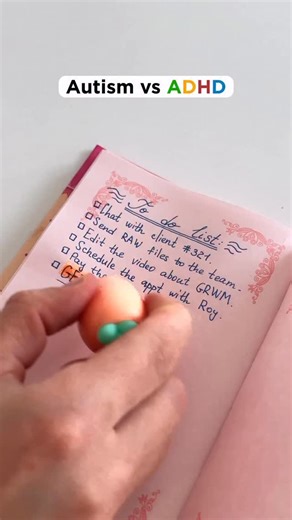 Autism vs ADHD
To do list:
Chat with client #321
Send RAW files to the team.
Edit the video about GRWM.
Schedule the appt with Roy.
Pay